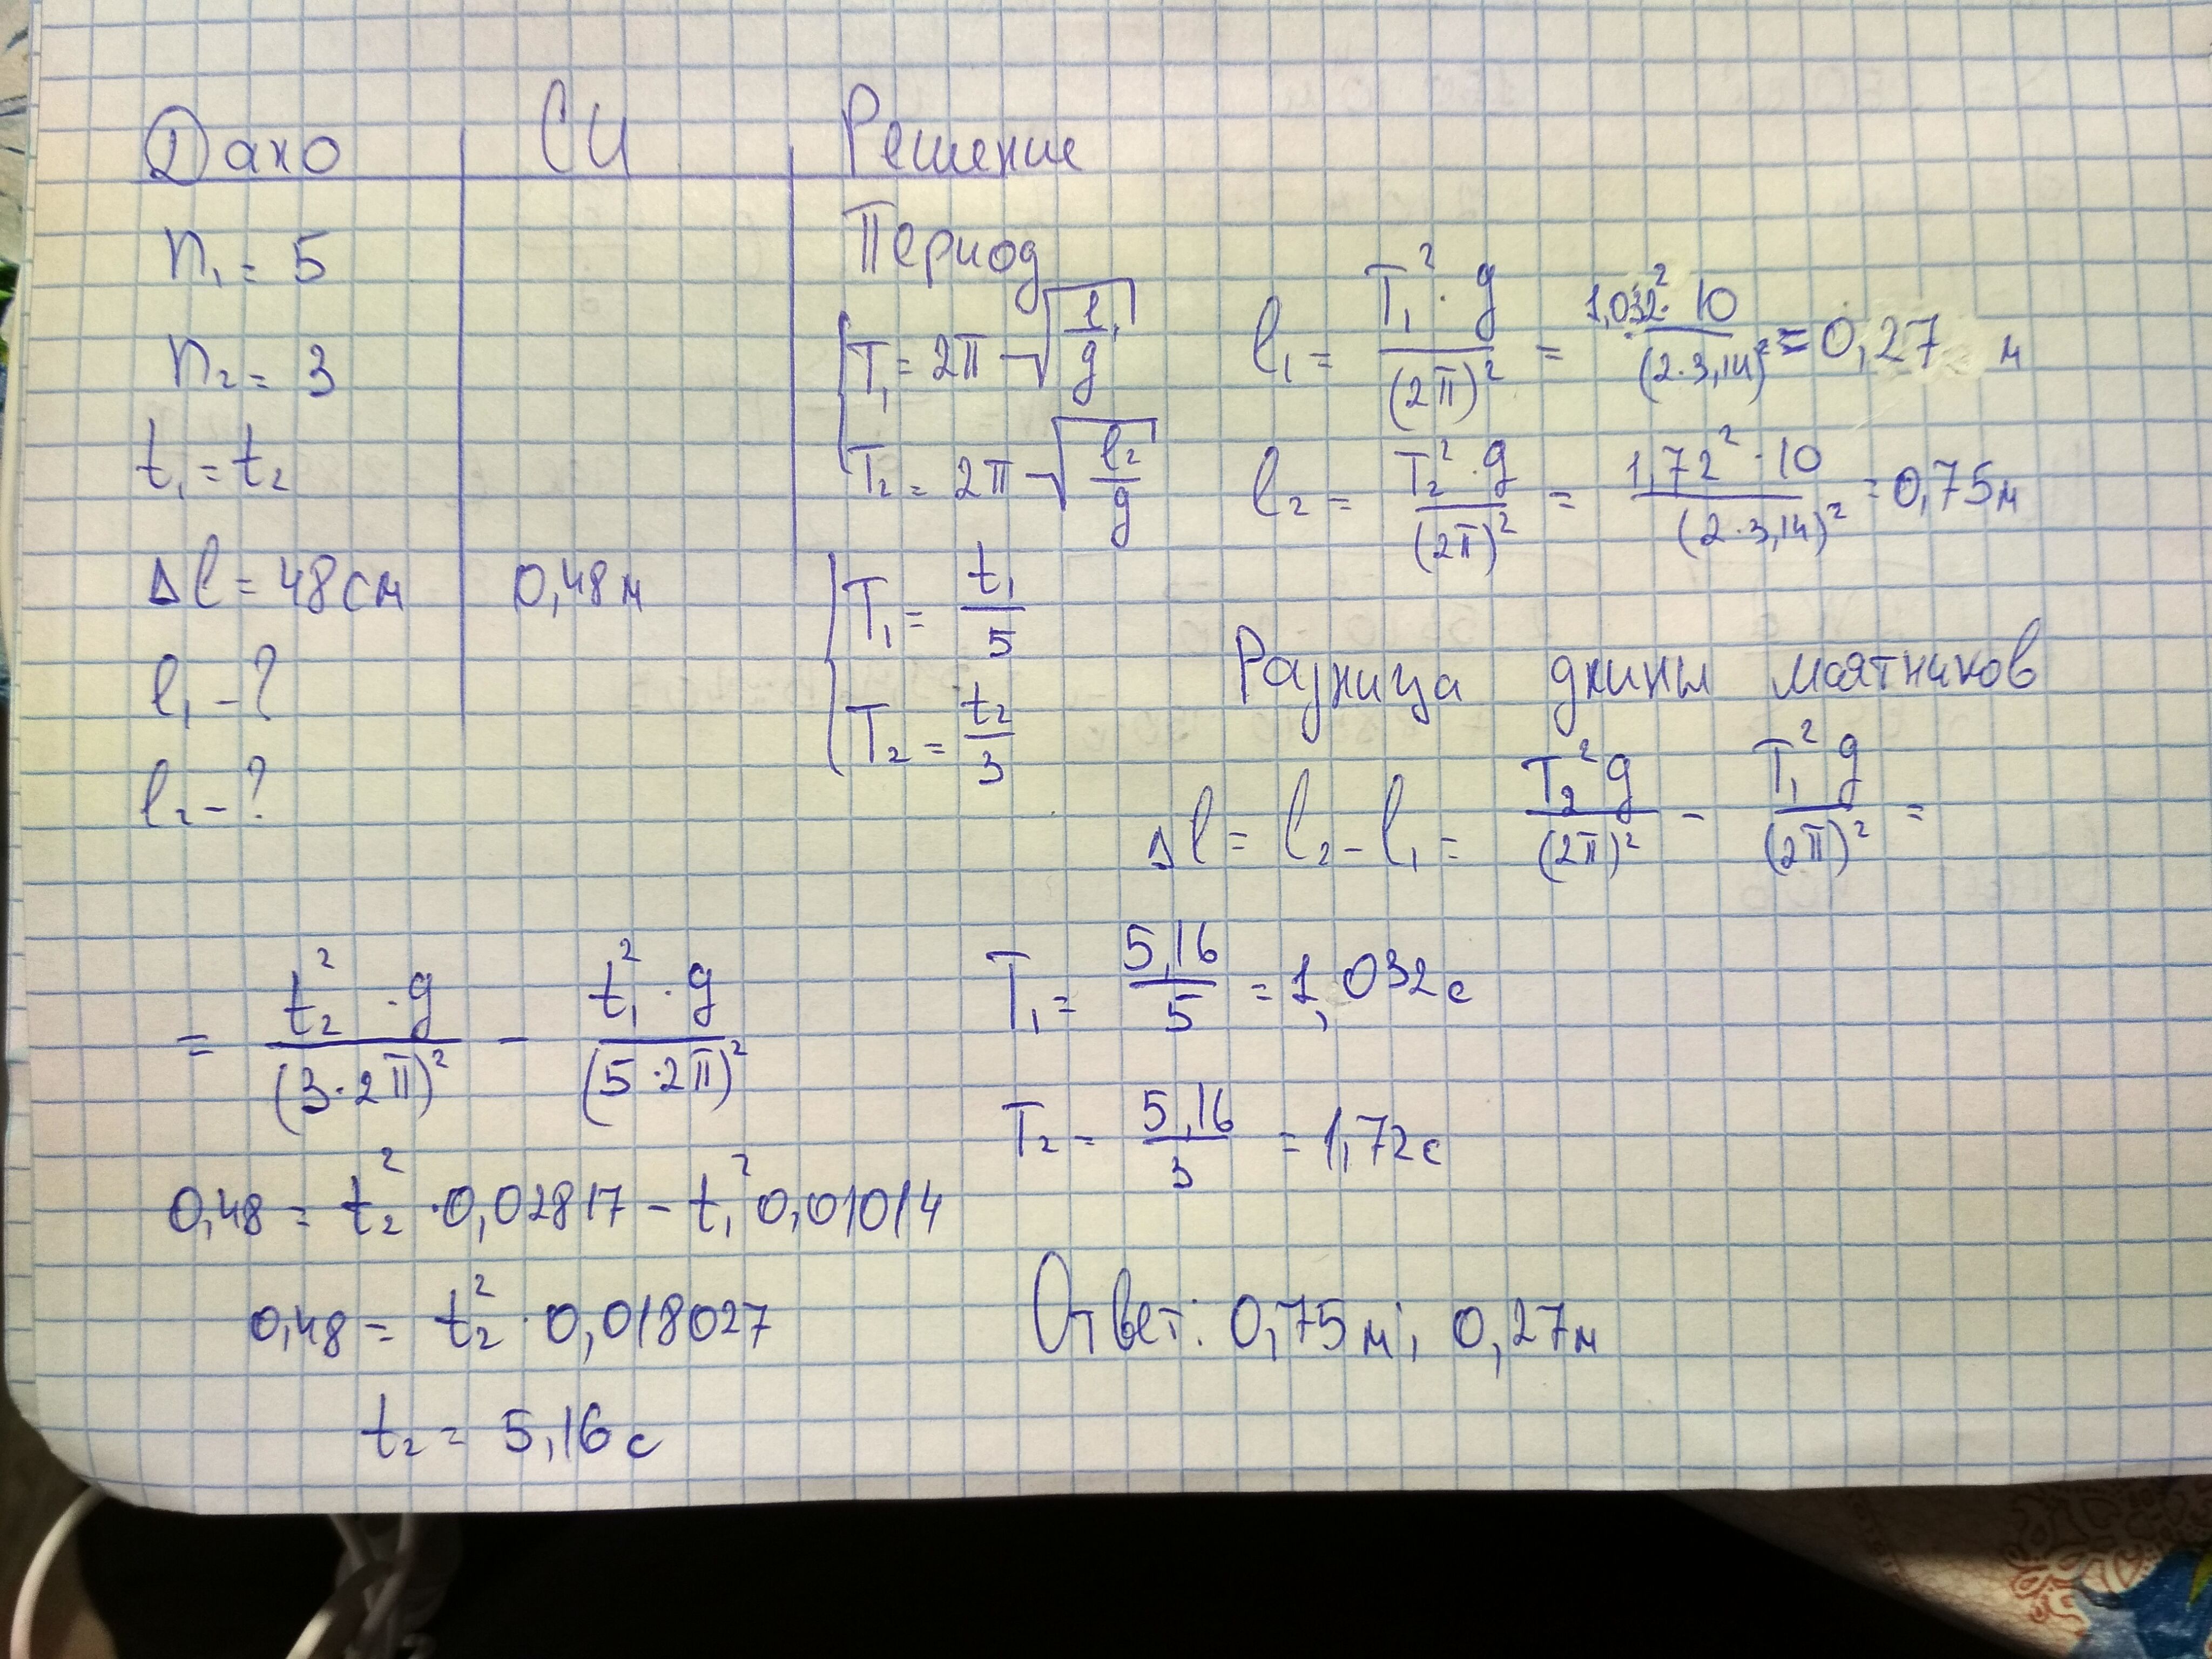 Дано СИ Решение
n₁ = 5
n₂ = 3
t₁ = t₂
Δl = 48см 0,48м
l₁ - ?
l₂ - ?
Период
T₁ = 2π√(l₁/g)
T₂ = 2π√(l₂/g)
T₁ = t₁/5
T₂ = t₂/3
l₁ = T₁²·g/(2π)² = 1,032²·10/(2·3,14)² = 0,27 м
l₂ = T₂²·g/(2π)² = 1,72²·10/(2·3,14)² = 0,75м
Разница длины маятников
Δl = l₂ - l₁ = T₂²g/(2π)² - T₁²g/(2π)² =
= t₂²·g/(3·2π)² - t₁²·g/(5·2π)²
0,48 = t₂²·0,02817 - t₁²0,01014
0,48 = t₂²·0,018027
t₂ = 5,16с
T₁ = 5,16/5 = 1,032с
T₂ = 5,16/3 = 1,72с
Ответ: 0,75м; 0,27м